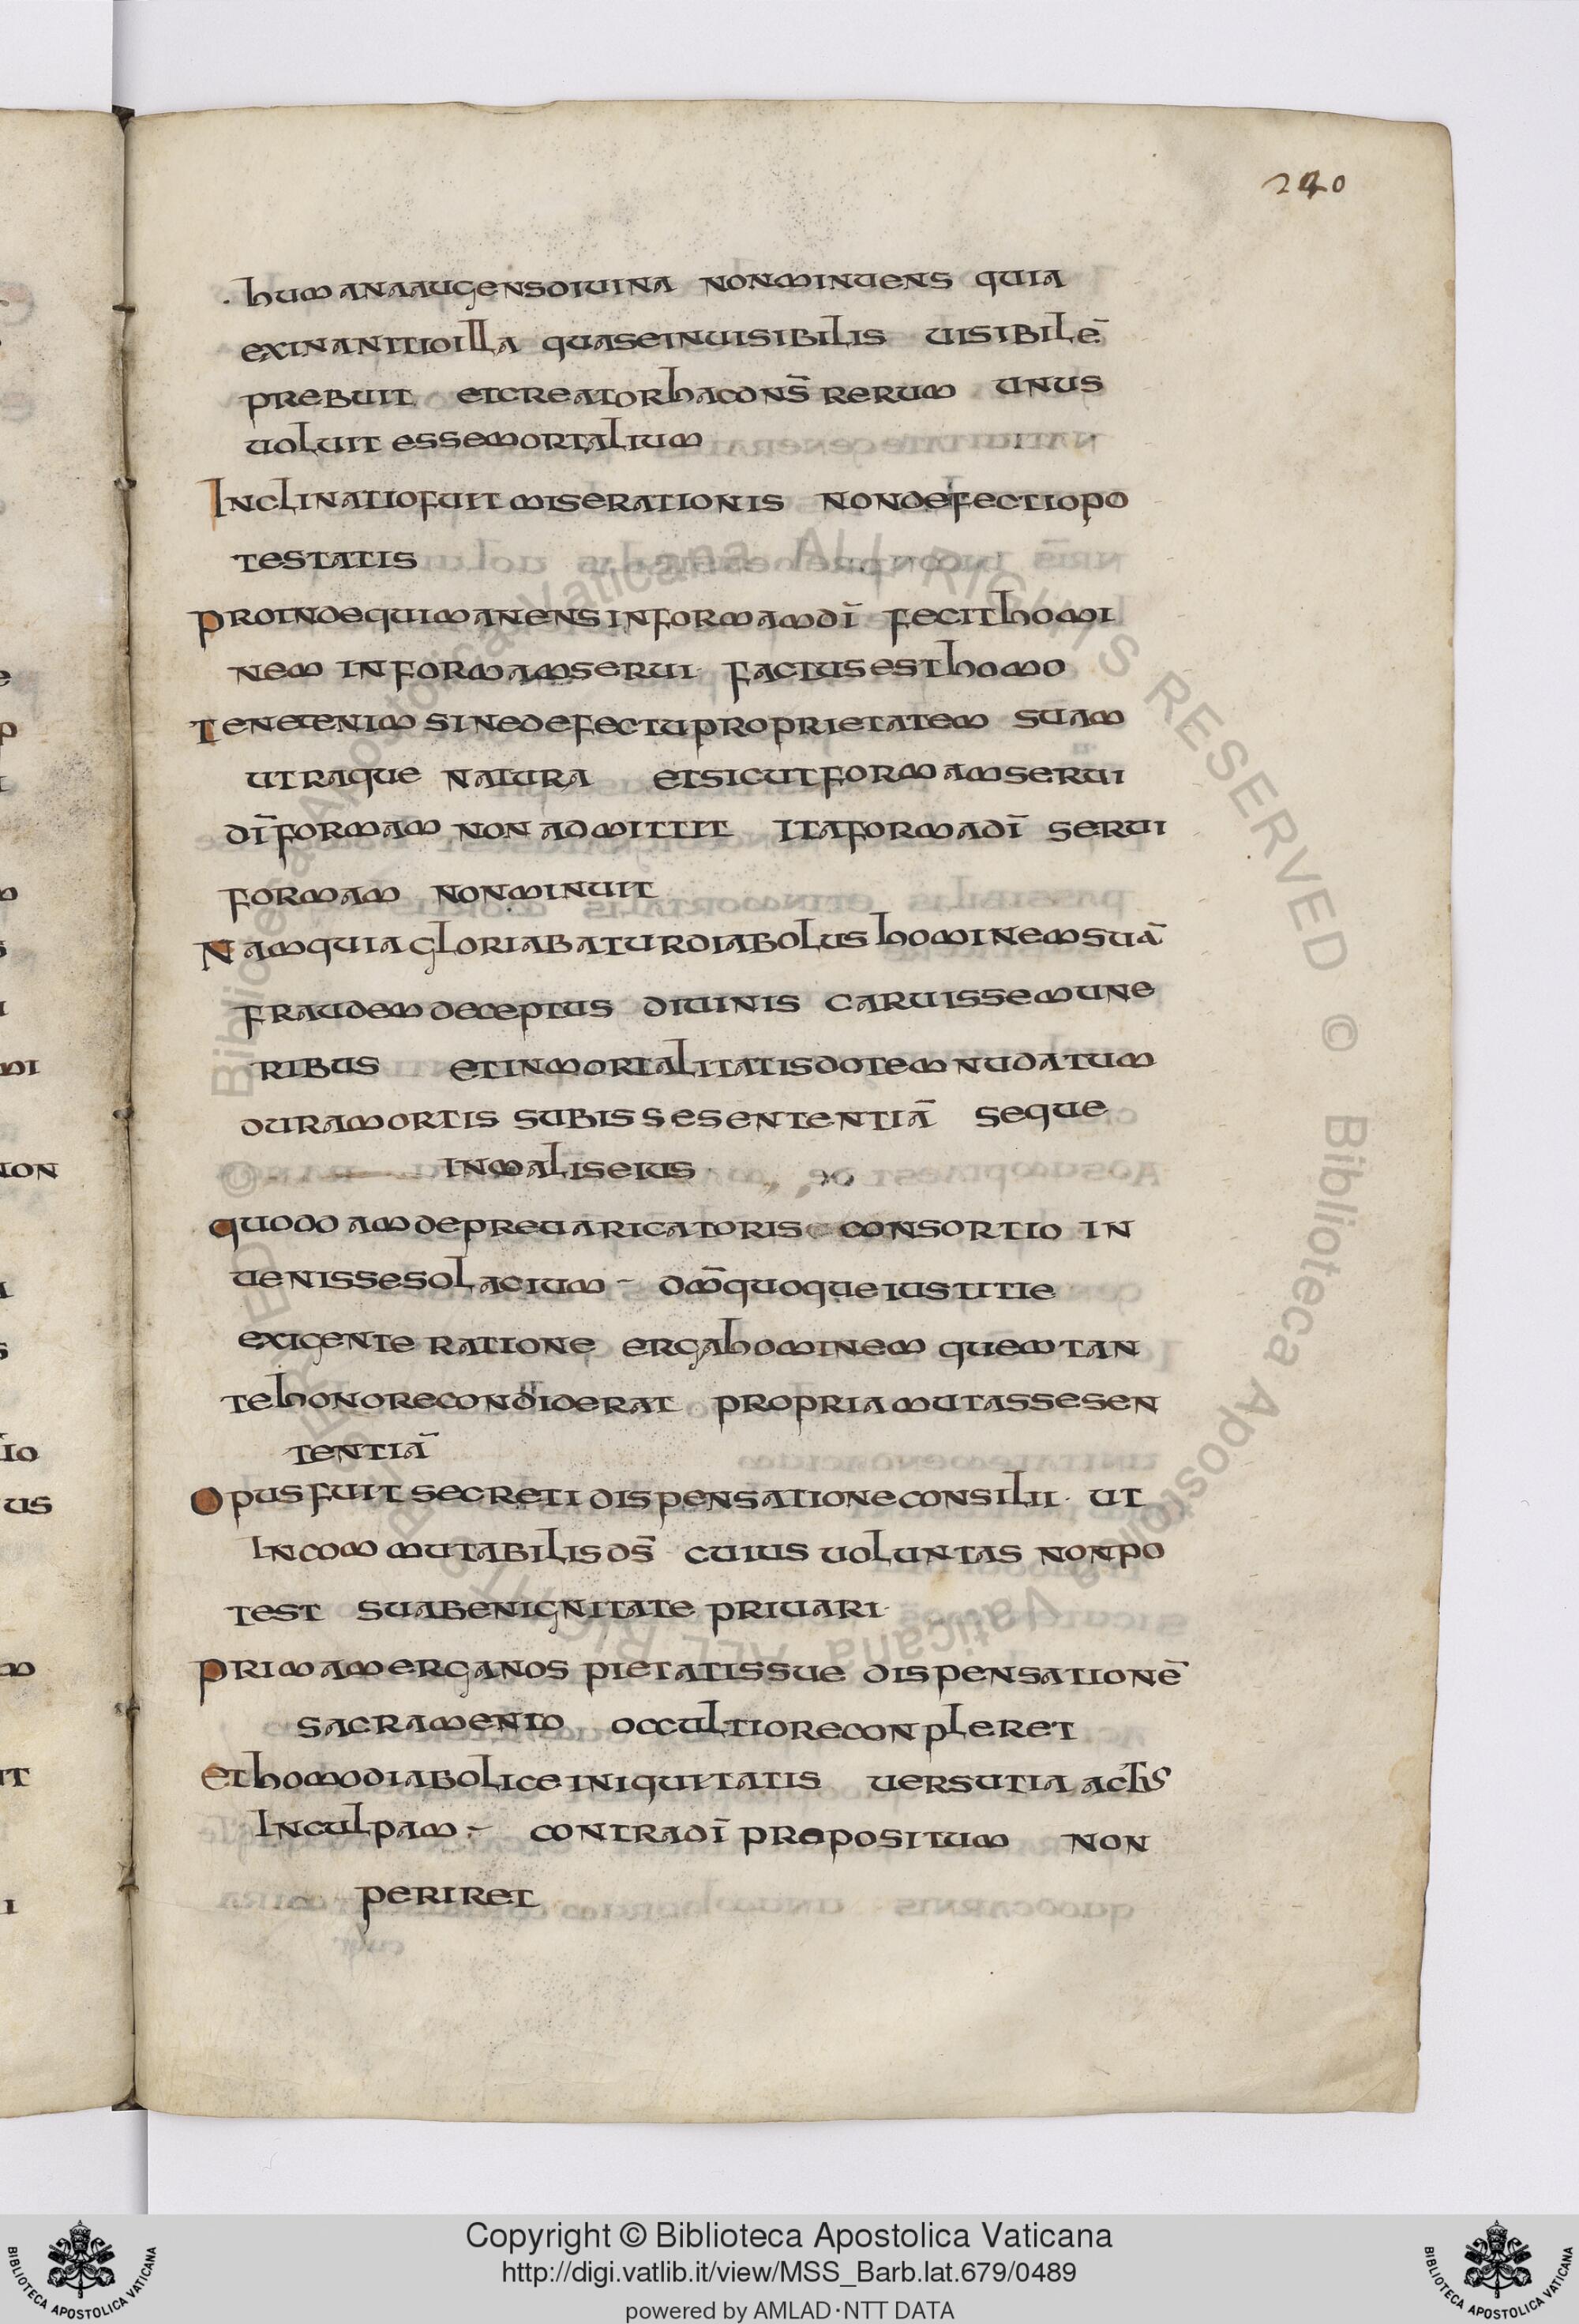 240
· humana augens diuina non minuens quia
exinanitio illa qua se inuisibilis uisibilē
prebuit et creator hac dons̄ rerum unus
uoluit esse mortalium
Inclinatio fuit miserationis non defectio po
testatis
proinde qui manens in formam dī fecit homi
nem in formam serui · factus est homo
Tenet enim sine defectu proprietatem suam
utraque natura et sicut formam serui
dī formam non admittit Ita forma dī serui
formam non minuit
Nam quia gloriabatur diabolus hominem suā
fraudem deceptus diuinis caruisse mune
ribus et inmortalitatis dotem nudatum
dura mortis subisse sententiā seque
in malis eius ·
quoddam de preuaricatoris consortio in
uenisse solacium – dm̄ quoque iustitie
exigente ratione erga hominem quem tan
te honore condiderat propria mutasse sen
tentiā
Opus fuit secreti dispensatione consilii · ut
Incommutabilis ds̄ cuius uoluntas non po
test sua benignitate priuari ·
primam erga nos pietatis sue dispensationē
sacramento occultiore conpleret
et homo diabolice iniquitatis uersutia actus
In culpam ÷ contra dī propositum non
periret
© Biblioteca Apostolica Vaticana ALL RIGHTS RESERVED © Biblioteca Apostolica Vaticana ALL RIGHTS RESERVED
Copyright © Biblioteca Apostolica Vaticana
http://digi.vatlib.it/view/MSS_Barb.lat.679/0489
powered by AMLAD·NTT DATA
BIBLIOTECA APOSTOLICA VATICANA
BIBLIOTECA APOSTOLICA VATICANA